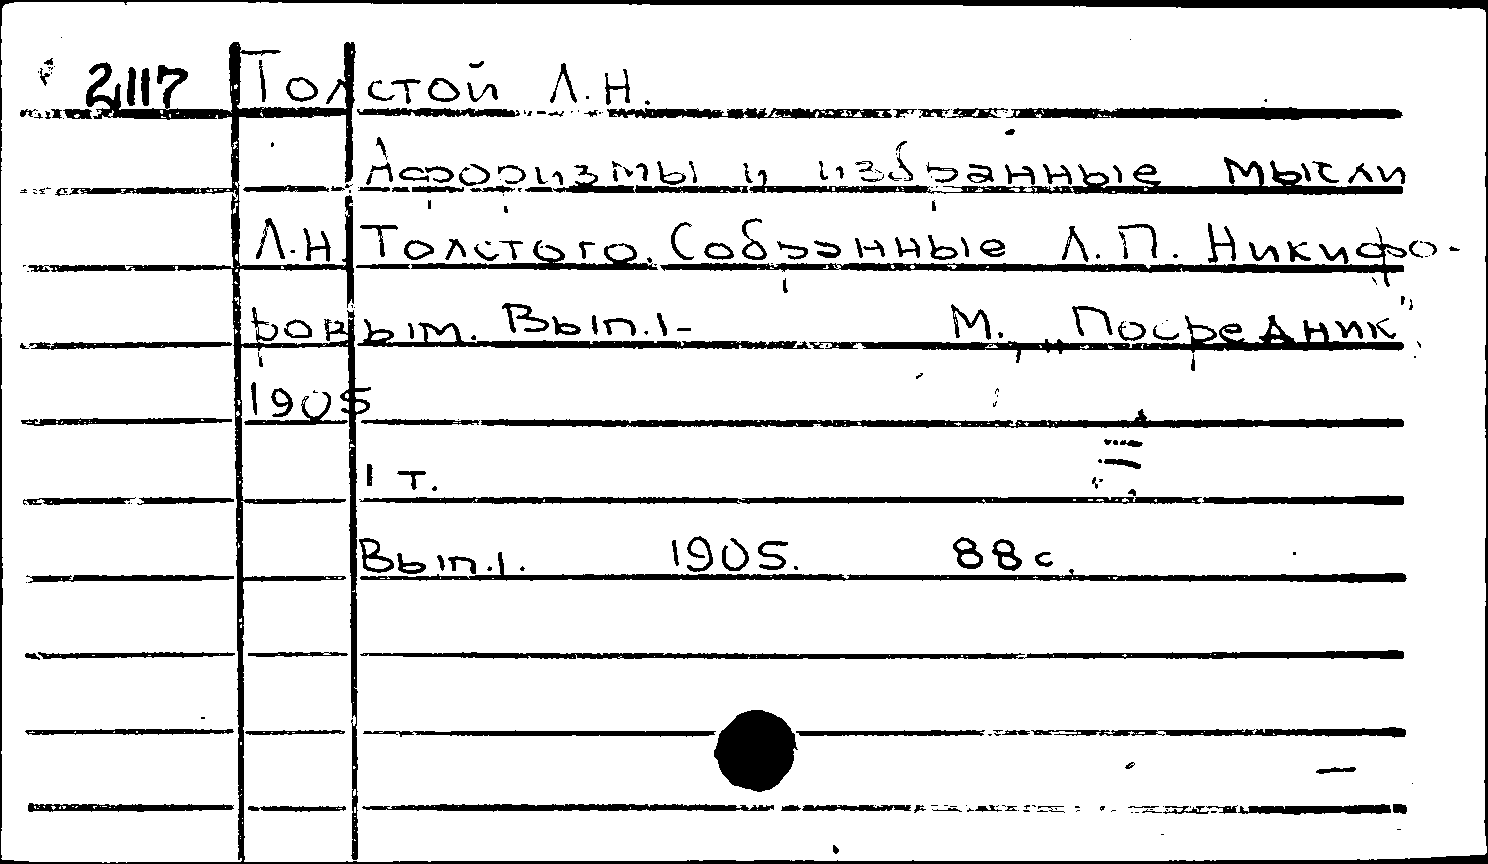 2117 Толстой Л.Н.
Афоризмы и избранные мысли
Л.Н. Толстого. Собранные Л.П. Никифо-
ровым. Вып.1- М., „Посредник"
1905
1 т.
Вып.1. 1905. 88 с.